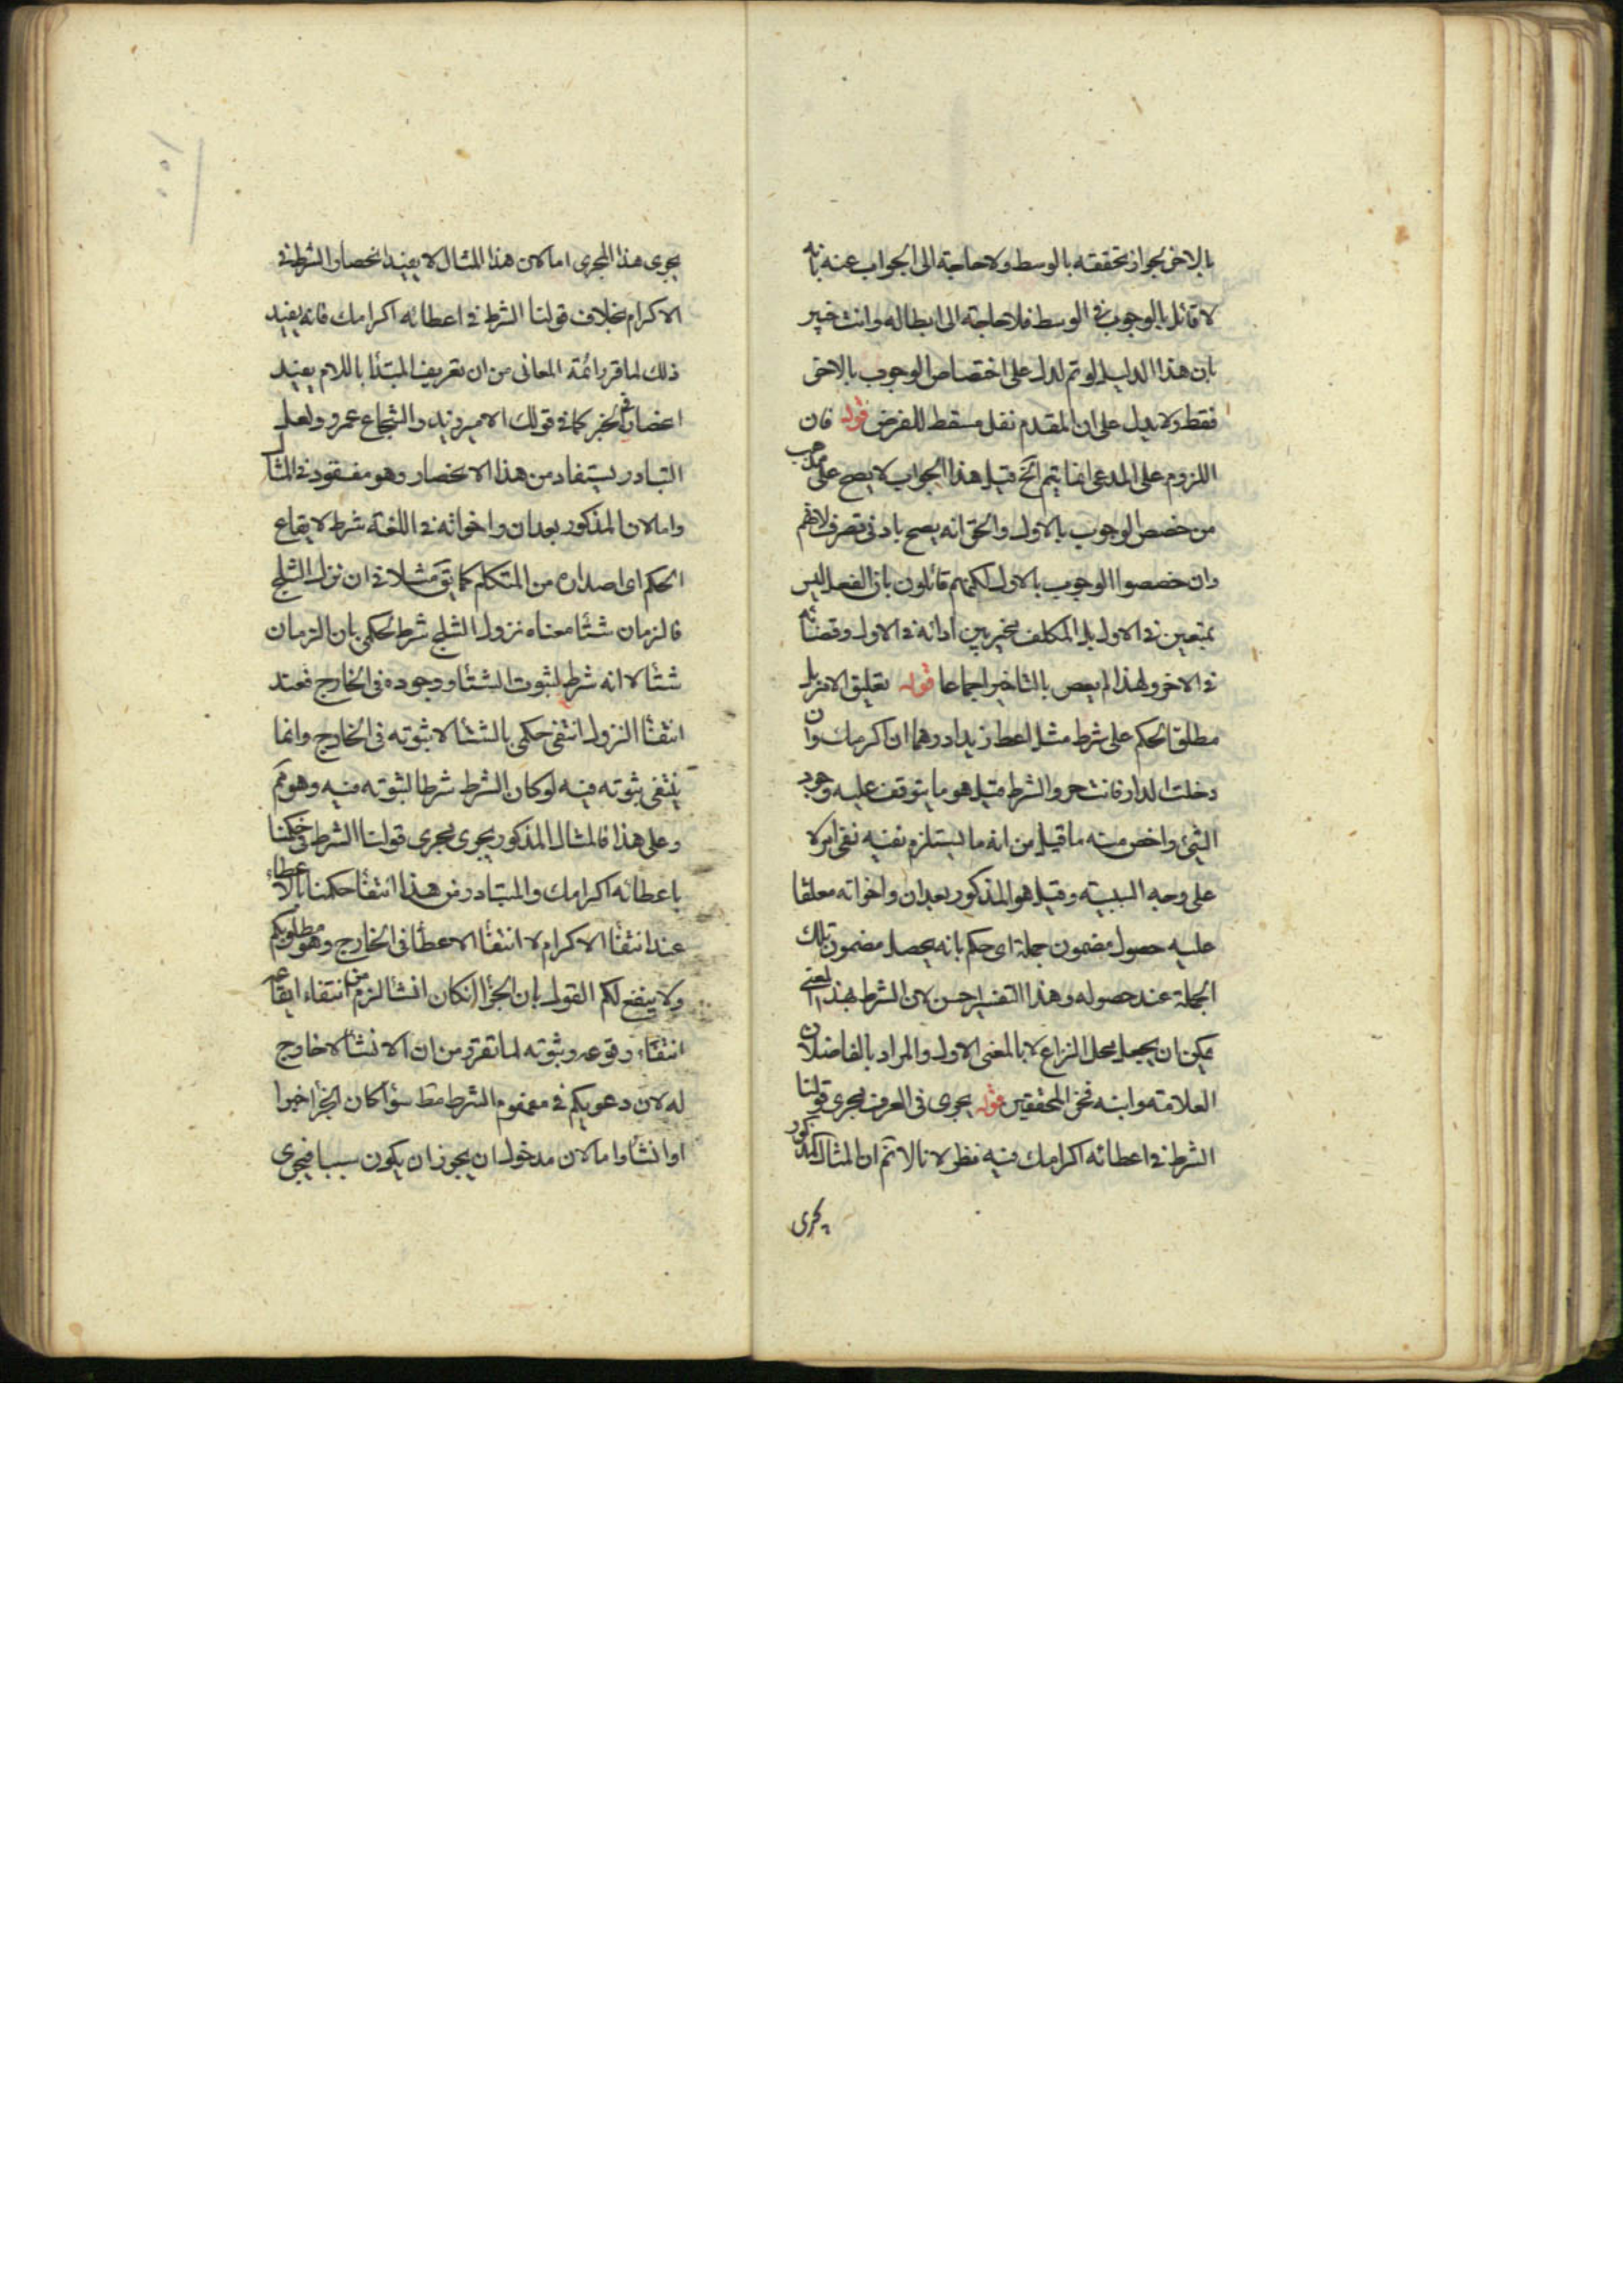 بالاخر بجواز تحققه بالوسط ولا حاجة الى الجواب عنه بانه
لا قائل بالوجوب في الوسط فلا حاجة الى ابطاله وانت خبير
بان هذا الدليل لو تم لدل على اختصاص الوجوب بالاخر
فقط ولا يدل على ان المقدم نفل مسقط للفرض قوله فان
اللزوم على المدعى انما يتم الخ قيل هذا الجواب لا يصح على مذهب
من خصص الوجوب بالاول والحق انه يصح بادنى تصرف لانهم
وان خصصوا الوجوب بالاول لكنهم قائلون بان الفعل ليس
بمتعين في الاول بل المكلف مخير بين ادائه في الاول وقضائه
في الاخر ولهذا لم يعص بالتاخير اجماعا قوله تعليق الامر بل
مطلق الحكم على شرط مثل اعط زيدا درهما ان اكرمك وان
دخلت الدار فانت حر والشرط قيل هو ما يتوقف عليه وجود
الشيء واخص منه ما قيل من انه ما يستلزم نفيه نفي امر لا
على وجه السببية وقيل هو المذكور بعد ان واخواته معلقا
عليه حصول مضمون جملة اى حكم بانه يحصل مضمون تلك
الجملة عند حصوله وهذا التفسير احسن لان الشرط بهذا المعنى
يمكن ان يجعل محل النزاع لا بالمعنى الاول والمراد بالفاضلان
العلامة وابنه فخر المحققين قوله يجرى في العرف مجرى قولنا
الشرط في اعطائه اكرامك فيه نظر لانا لا نم ان المثال المذكور
يجرى
يجرى هذا المجرى اما لان هذا المثال لا يفيد انحصار الشرط في
الاكرام بخلاف قولنا الشرط في اعطائه اكرامك فانه يفيد
ذلك لما قرر ائمة المعانى من ان تعريف المبتدا باللام يفيد
انحصاره في الخبر كما في قولك الامير زيد والشجاع عمرو ولعل
التبادر يستفاد من هذا الانحصار وهو مفقود في المثال
واما لان المذكور بعد ان واخواته في اللغة شرط لايقاع
الحكم اى اصداره من المتكلم كما يق مثلا في ان نزل الثلج
فالزمان شتأ معناه نزول الثلج شرط لحكمى بان الزمان
شتأ لا انه شرط لثبوت الشتأ ووجوده في الخارج فعند
انتفأ النزول انتفى حكمى بالشتأ لا ثبوته في الخارج وانما
ينتفى ثبوته فيه لو كان الشرط شرطا لثبوته فيه وهو مم
وعلى هذا فالمثال المذكور يجرى مجرى قولنا الشرط في حكمنا
باعطائه اكرامك والمتبادر من هذا انتفأ حكمنا بالاعطاء
عند انتفأ الاكرام لا انتفأ الاعطأ في الخارج وهو مطلوبكم
ولا ينفع لكم القول بان الجزأ ان كان انشأ لزم من انتفاء ايقاعه
انتفاء وقوعه وثبوته لما تقرر من ان الانشأ لا خارج
له لان دعويكم في مفهوم الشرط مط سوأ كان الجزأ خبرا
او انشأ واما لان مدخول ان يجوز ان يكون سببا فيجرى